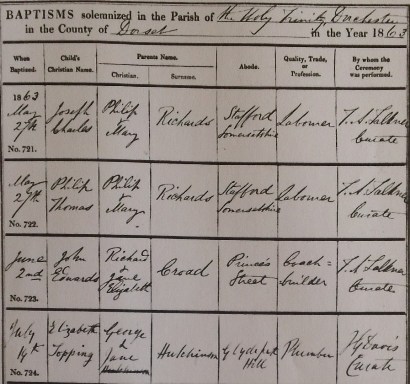 BAPTISMS solemnized in the Parish of the Holy Trinity Dorchester
in the County of Dorset in the Year 1863
When Baptized. Child's Christian Name. Parents Name. Abode. Quality, Trade, or Profession. By whom the Ceremony was performed.
Christian. Surname.
1863 May 27th No. 721. Joseph Charles Philip & Mary Richards Stafford Somersetshire Labourer Curate
May 27th No. 722. Philip Thomas Philip & Mary Richards Stafford Somersetshire Labourer Curate
June 2nd No. 723. John Edwards Richard & Jane Elizabeth Croad Princes Street Coach=builder Curate
July 19th No. 724. Elizabeth Topping George & Jane Hutchinson Glyde path Hill Plumber Curate